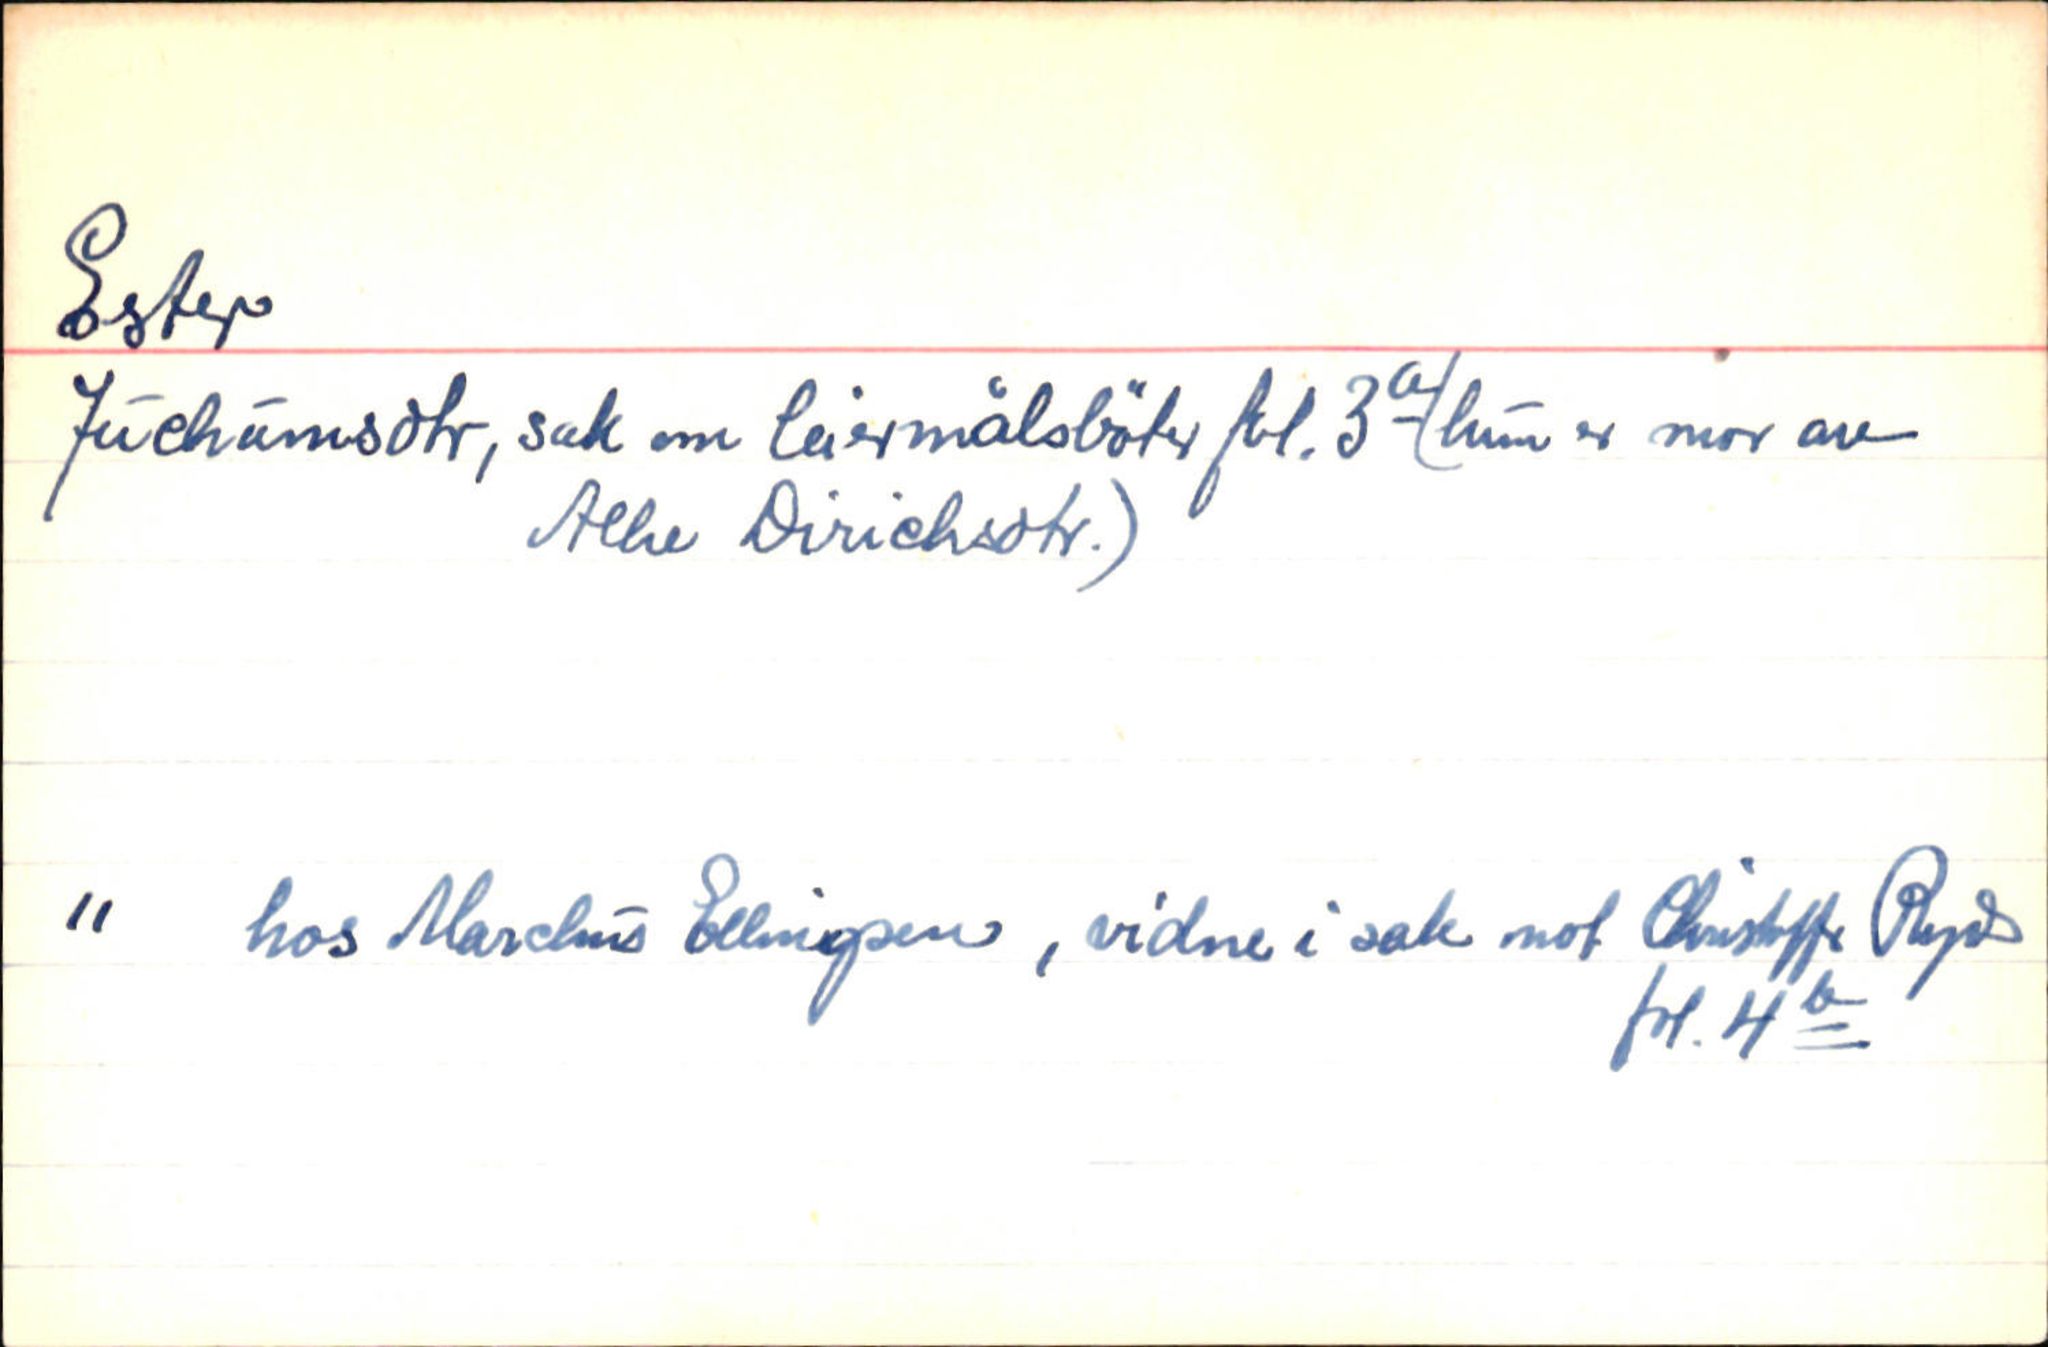 Ester
Juchumsdtr, sak om leiermålsböter fol. 3a (hun er mor av
Alhe Dirichsdtr.)
" hos Marchus Ellingsen, vidne i sak mot Christoffer
fol. 4b